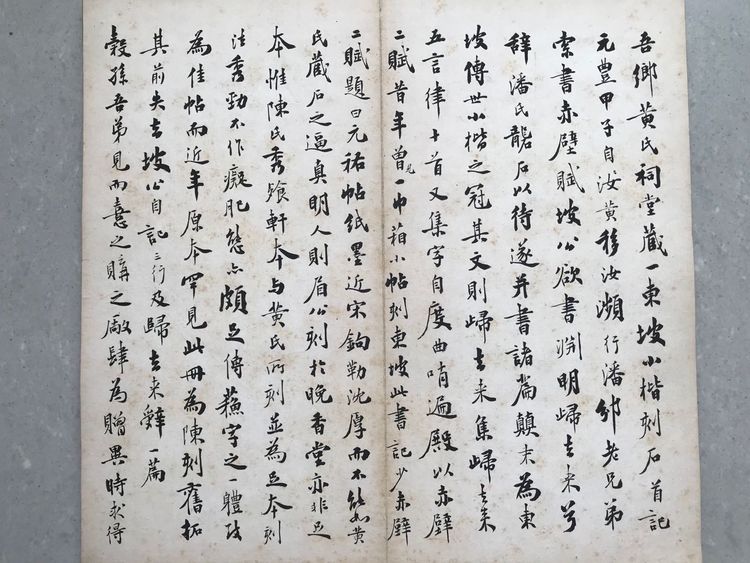 吾鄉黃氏祠堂藏一東坡小楷刻石首記
元豐甲子自汝黃移汝瀕行潘邠老兄弟
索書赤壁賦坡公欲書淵明歸去來兮
辭潘氏礱石以待遂并書諸篇顛末為東
坡傳世小楷之冠其文則歸去來集歸去來
五言律十首又集字自度曲哨遍殿以赤壁
二賦昔年曾見一巾箱小帖刻東坡此書記少赤壁
二賦題曰元祐帖紙墨近宋鉤勒沈厚而不能如黃
氏藏石之逼真明人則眉公刻於晚香堂亦非足
本惟陳氏秀餐軒本與黃氏所刻並為足本刻
法秀勁不作癡肥態亦頗足傳蘇字之一體改
為佳帖而近年原本罕見此冊為陳刻舊拓
其前失去坡公自記三行及歸去來辭一篇
穀孫吾弟見而憙之購之廠肆為贈異時求得